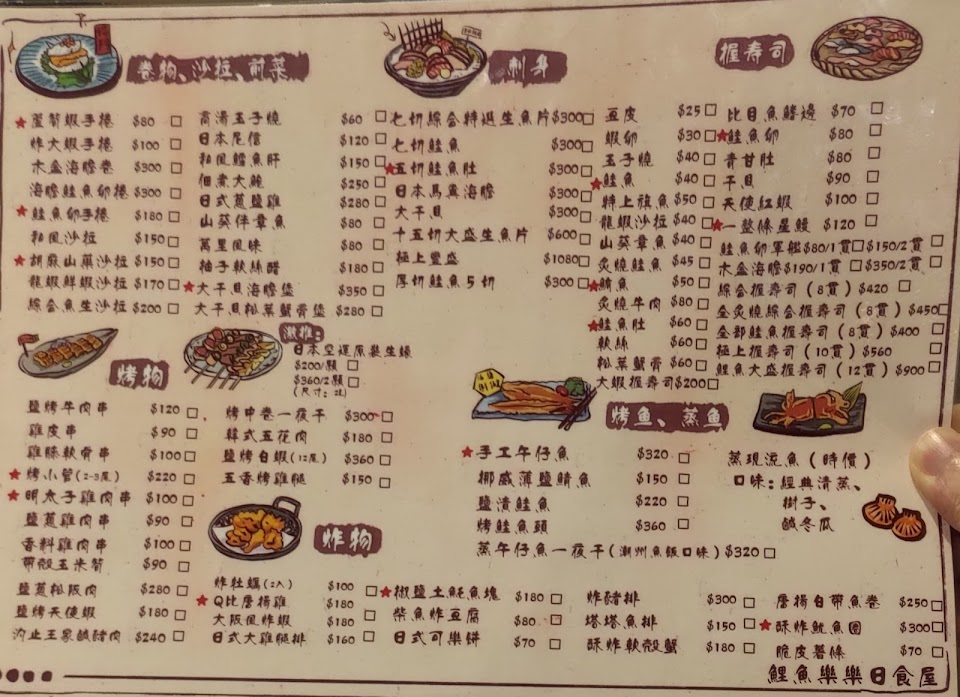 卷物、沙拉、前菜
★蘆筍蝦手捲 $80 □
炸大蝦手捲 $100 □
木盒海膽卷 $300 □
海膽鮭魚卵捲 $300 □
★鮭魚卵手捲 $180 □
和風沙拉 $150 □
★胡麻山藥沙拉 $150 □
龍蝦鮮蝦沙拉 $170 □
綜合魚生沙拉 $200 □
高湯玉子燒 $60 □
日本尾信 $120 □
和風鱈魚肝 $150 □
佃煮大鮑 $250 □
日式蔥鹽雞 $280 □
山葵伴章魚 $80 □
萬里風味 $80 □
柚子軟絲醋 $180 □
★大干貝海膽堡 $350 □
大干貝松葉蟹膏堡 $280 □
刺身
七切綜合特選生魚片 $300 □
七切鮭魚 $300 □
★五切鮭魚肚 $300 □
日本馬糞海膽 $300 □
大干貝 $300 □
十五切大盛生魚片 $600 □
極上豐盛 $1080 □
厚切鮭魚5切 $300 □
握壽司
豆皮 $25 □
蝦卵 $30 □
玉子燒 $40 □
★鮭魚 $40 □
特上旗魚 $50 □
龍蝦沙拉 $40 □
山葵章魚 $40 □
炙燒鮭魚 $45 □
★鯛魚 $50 □
炙燒牛肉 $80 □
★鮭魚肚 $60 □
軟絲 $60 □
松葉蟹膏 $60 □
大蝦握壽司 $200 □
比目魚鰭邊 $70 □
★鮭魚卵 $80 □
青甘肚 $80 □
干貝 $90 □
天使紅蝦 $100 □
★一整條星鰻 $120 □
鮭魚卵軍艦 $80/1貫 □ $150/2貫 □
木盒海膽 $190/1貫 □ $350/2貫 □
綜合握壽司（8貫）$420 □
全炙燒綜合握壽司（8貫）$450 □
全部鮭魚握壽司（8貫）$400 □
極上握壽司（10貫）$560 □
鯉魚大盛握壽司（12貫）$900 □
烤物
激推：
日本空運原裝生蠔
$200/顆 □
$360/2顆 □
（尺寸：2L）
鹽烤牛肉串 $120 □
雞皮串 $90 □
雞腿軟骨串 $100 □
★烤小管（2-3尾） $220 □
★明太子雞肉串 $100 □
鹽蔥雞肉串 $90 □
香料雞肉串 $100 □
帶殼玉米筍 $90 □
鹽蔥松阪肉 $280 □
鹽烤天使蝦 $180 □
沟止王景鹹豬肉 $240 □
烤中卷一夜干 $300 □
韓式五花肉 $180 □
鹽烤白蝦（12尾） $360 □
五香烤雞腿 $150 □
烤魚、蒸魚
★手工午仔魚 $320 □
挪威薄鹽鯖魚 $150 □
鹽漬鮭魚 $220 □
烤鮭魚頭 $360 □
蒸午仔魚一夜干（潮州魚飯口味）$320 □
蒸現流魚（時價）
口味：經典清蒸、
樹子、
鹹冬瓜
炸物
炸牡蠣（2入） $100 □
★Q比唐揚雞 $180 □
大阪風炸蝦 $180 □
日式大雞腿排 $160 □
★椒鹽土魠魚塊 $180 □
柴魚炸豆腐 $80 □
日式可樂餅 $70 □
炸豬排 $300 □
塔塔魚排 $150 □
酥炸軟殼蟹 $180 □
唐揚白帶魚卷 $250 □
★酥炸魷魚圈 $300 □
脆皮薯條 $70 □
鯉魚樂樂日食屋